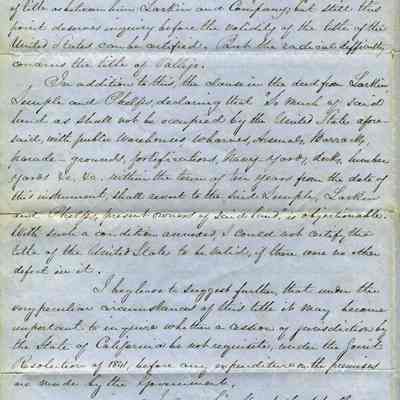 of title as between him Larkin and Company; but still this
point deserves inquiry before the validity of the title of the
United States can be certified. But the radical difficulty
concerns the title of Vallejo.
In addition to this, the clause in the deed from Larkin
Semple and Phelps, declaring that so much of said
land as shall not be occupied by the United States afore-
said, with public Warehouses Wharves, Arsenals, Barracks,
parade-grounds, fortifications, Navy Yards, docks, lumber
yards &c, &c. within the term of ten years from the date of
this instrument, shall revert to the said Semple, Larkin
and Phelps, present owners of said land, is objectionable.
With such a condition annexed, I could not certify the
title of the United States to be valid, if there were no other
defect in it.
I beg leave to suggest further, that under the
very peculiar circumstances of this title it may become
important to inquire whether a cession of jurisdiction by
the State of California be not requisite, under the Joint
Resolution of 1841, before any expenditure on the premises
are made by the Government.